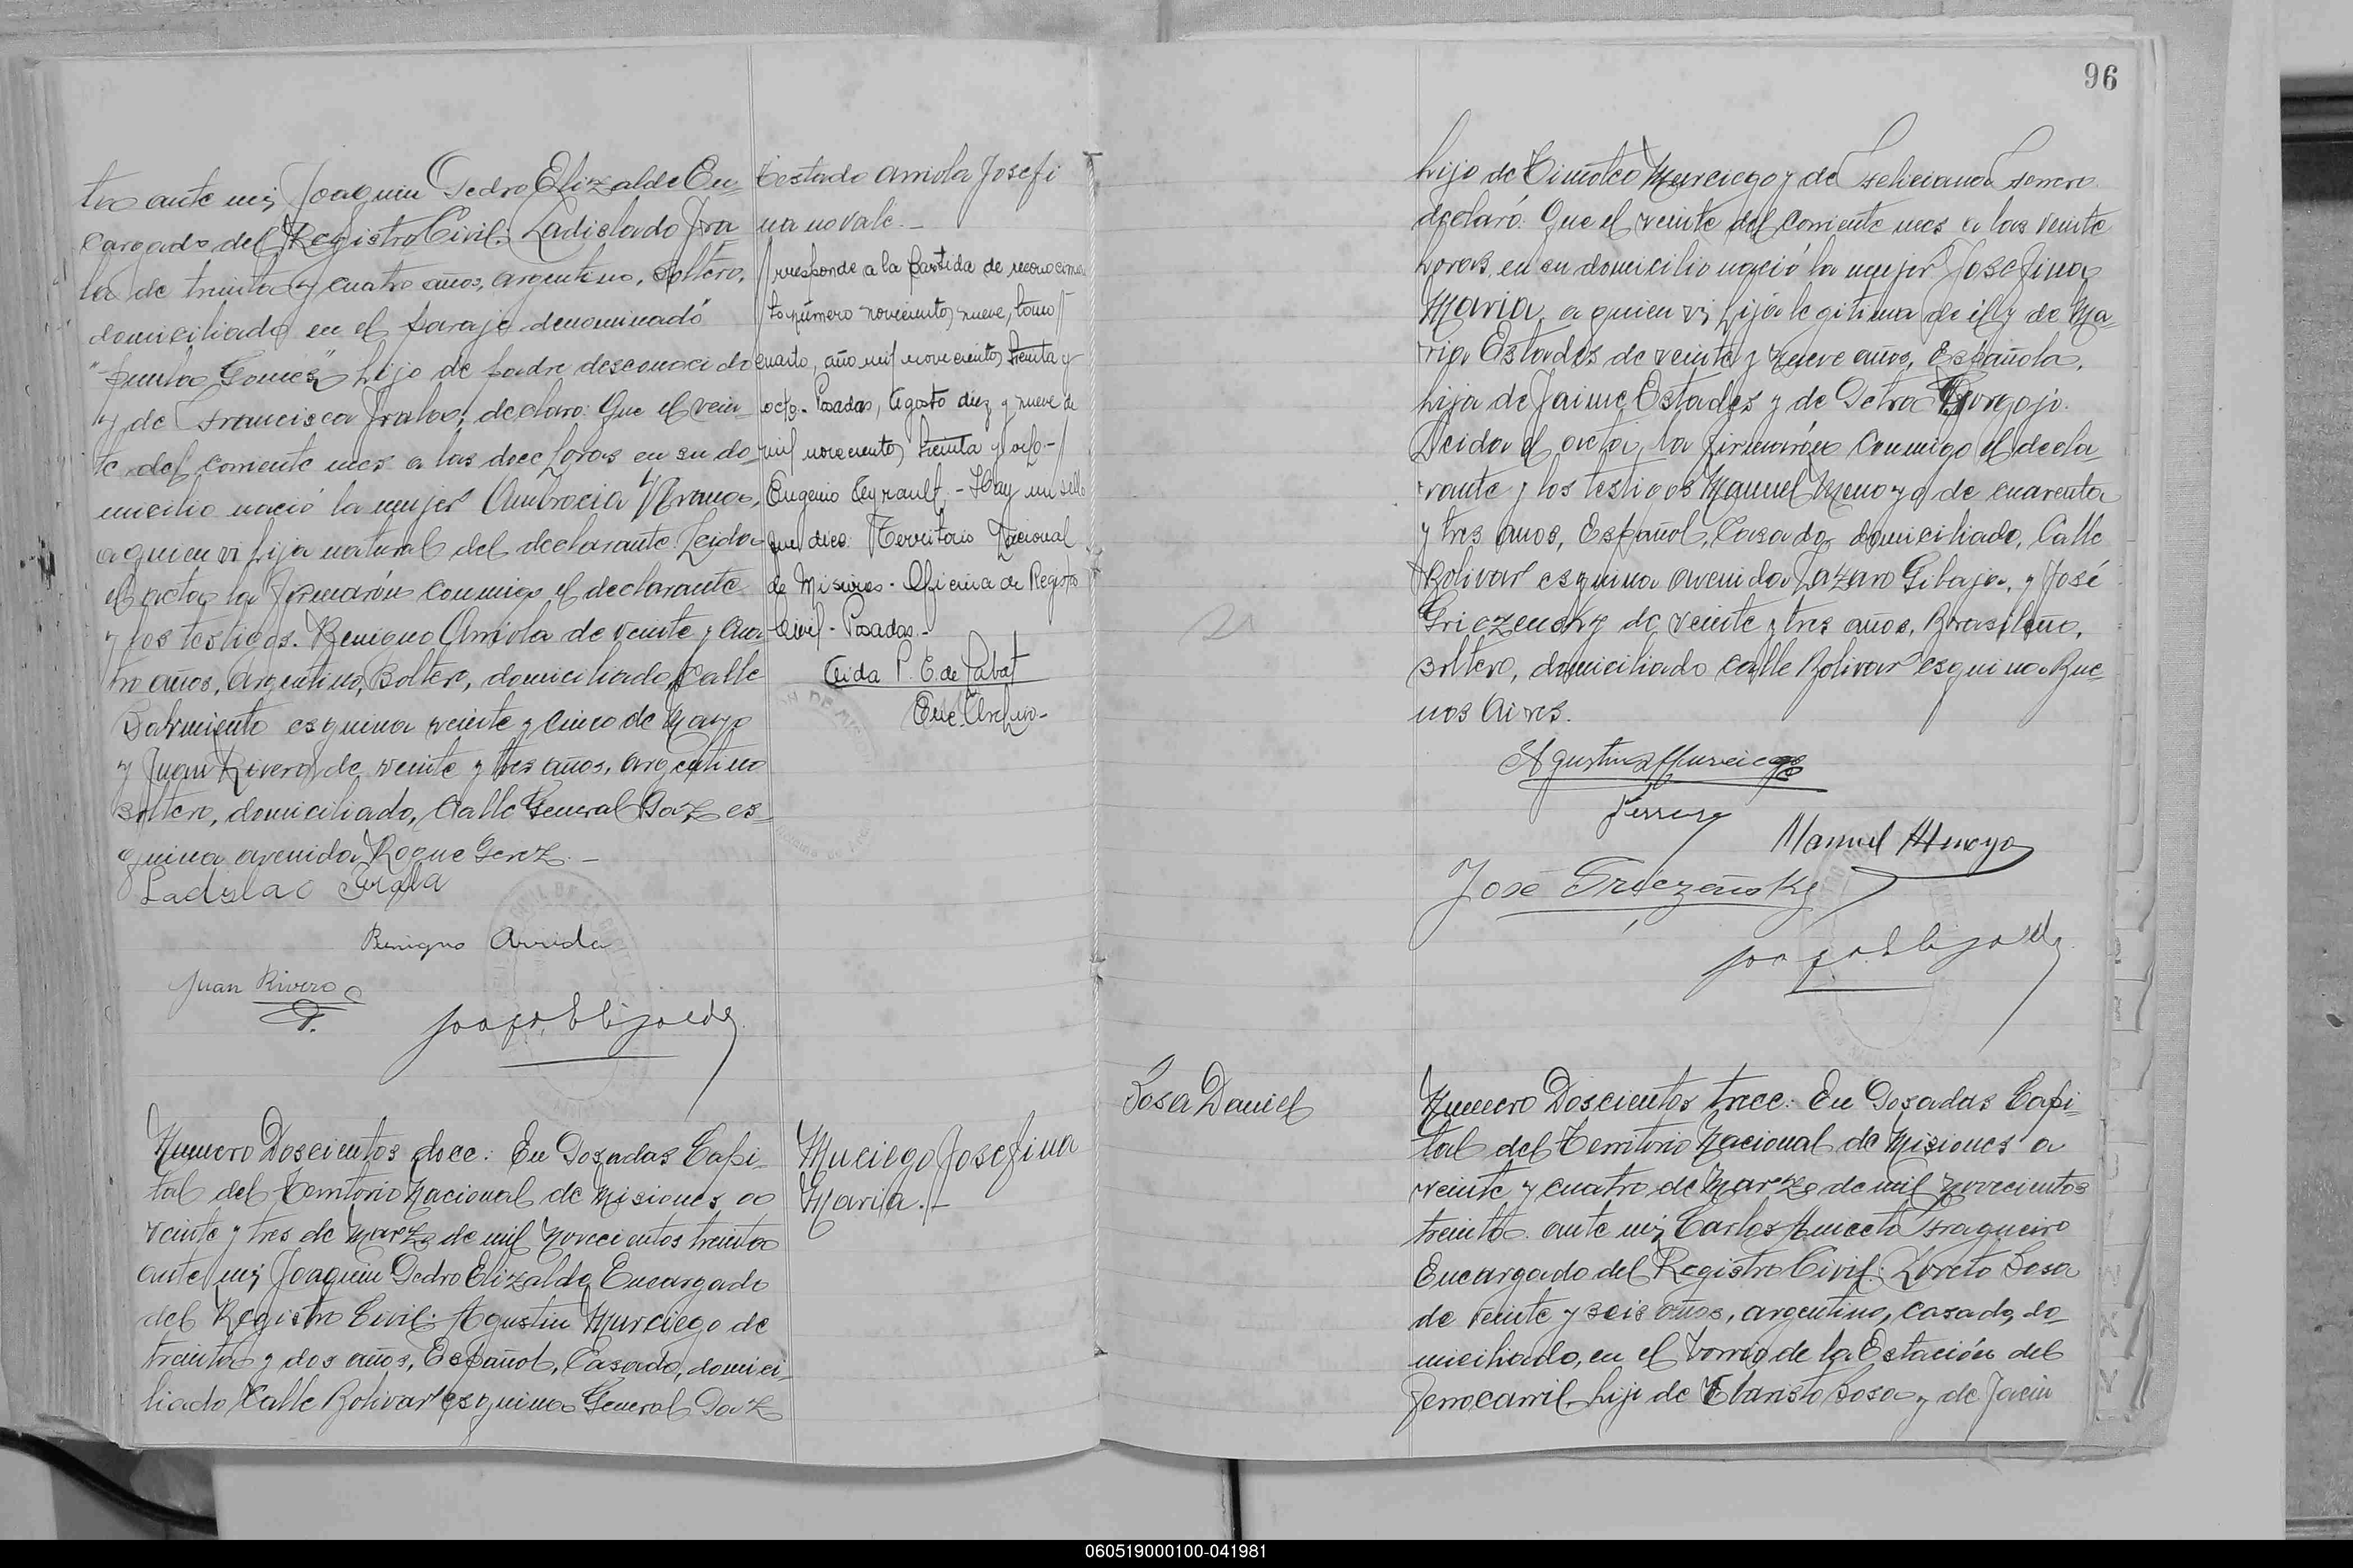 tro ante mi, Joaquin Pedro Elizalde En-
cargado del Registro Civil: Ladislado Fra
la de treinta y cuatro años, argentino, soltero,
domiciliado en el paraje denominado
"Punta Gomes" hijo de padre desconocido
y de Francisca Frala; declaro: Que el vein-
te del corriente mes a las doce horas en su do-
micilio nació la mujer Ambrocia
a quien vi hija natural del declarante. Leida
el acta, la firmarón conmigo el declarante
y los testigos. Benigno Arriola de veinte y cua-
tro años, Argentino, Soltero, domiciliado, Calle
Sarmiento esquina veinte y cinco de Mayo
y Juan Rivero, de veinte y tres años, argentino
soltero, domiciliado, Calle General Paz es-
quina avenida Roque Perez. -
Ladislao
Benigno
Juan Rivero
Testado Arriola Josefi
na no vale. -
rresponde a la partida de reconocimien
to número novecientos nueve, tomo
cuarto, año mil novecientos treinta y
octo. Posadas, Agosto diez y nueve de
mil novecientos treinta y ocho -
Eugenio - Hay un sello
que dice: Territorio Nacional
de Misiones - Oficina de Registro
Civil - Posadas. -
Aida P. E. de
Enc. Archivo -
Numero Doscientos doce: En Posadas Capi-
tal del Territorio Nacional de Misiones a
veinte y tres de Marzo de mil Novecientos treinta
ante mi, Joaquin Pedro Elizalde Encargado
del Registro Civil: Agustin Murciego de
treinta y dos años, Español, Casado, domici-
liado Calle Bolivar esquina General Paz
Muciego Josefina
Maria. -
96
hijo de Timoteo Murciego y de Feliciana Ferrero
declaró: Que el veinte del corriente mes a las veinte
horas, en su domicilio nació la mujer Josefina
Maria, a quien vi, hija legitima de él y de Ma-
ria Estades de veinte y nueve años, Española,
hija de Jaime Estades y de Petra Gorgojo.
Leida el acta, la firmarón conmigo el decla-
rante y los testigos Manuel Menoyo de cuarenta
y tres años, Español, Casado, domiciliado, Calle
Bolivar esquina avenida Lazaro Gibaja, y José
Griezensky de veinte y tres años, Brasileño,
soltero, domiciliado calle Bolivar esquina Bue-
nos Aires.
Agustin Murciego
Ferrero
Manuel Menoyo
José
Sosa Daniel
Numero Doscientos trece: En Posadas Capi-
tal del Territorio Nacional de Misiones a
veinte y cuatro de Marzo de mil Novecientos
treinta. ante mi, Carlos Aniceto Fragueiro
Encargado del Registro Civil: Loreto Sosa
de veinte y seis años, argentino, casado, do-
miciliado, en el barrio de la Estación del
Ferrocarril hijo de Ebaristo Sosa y de Jacin
060519000100-041981